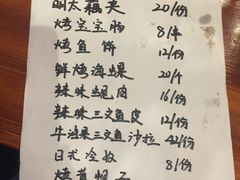 明太藕夹 20/份
烤宝宝肠 8/串
烤鱼饼 12/份
鲜烤海螺 20/个
辣味蚬肉 16/份
辣味三文鱼皮 12/份
牛油果三文鱼沙拉 42/份
日式冷奴 8/份